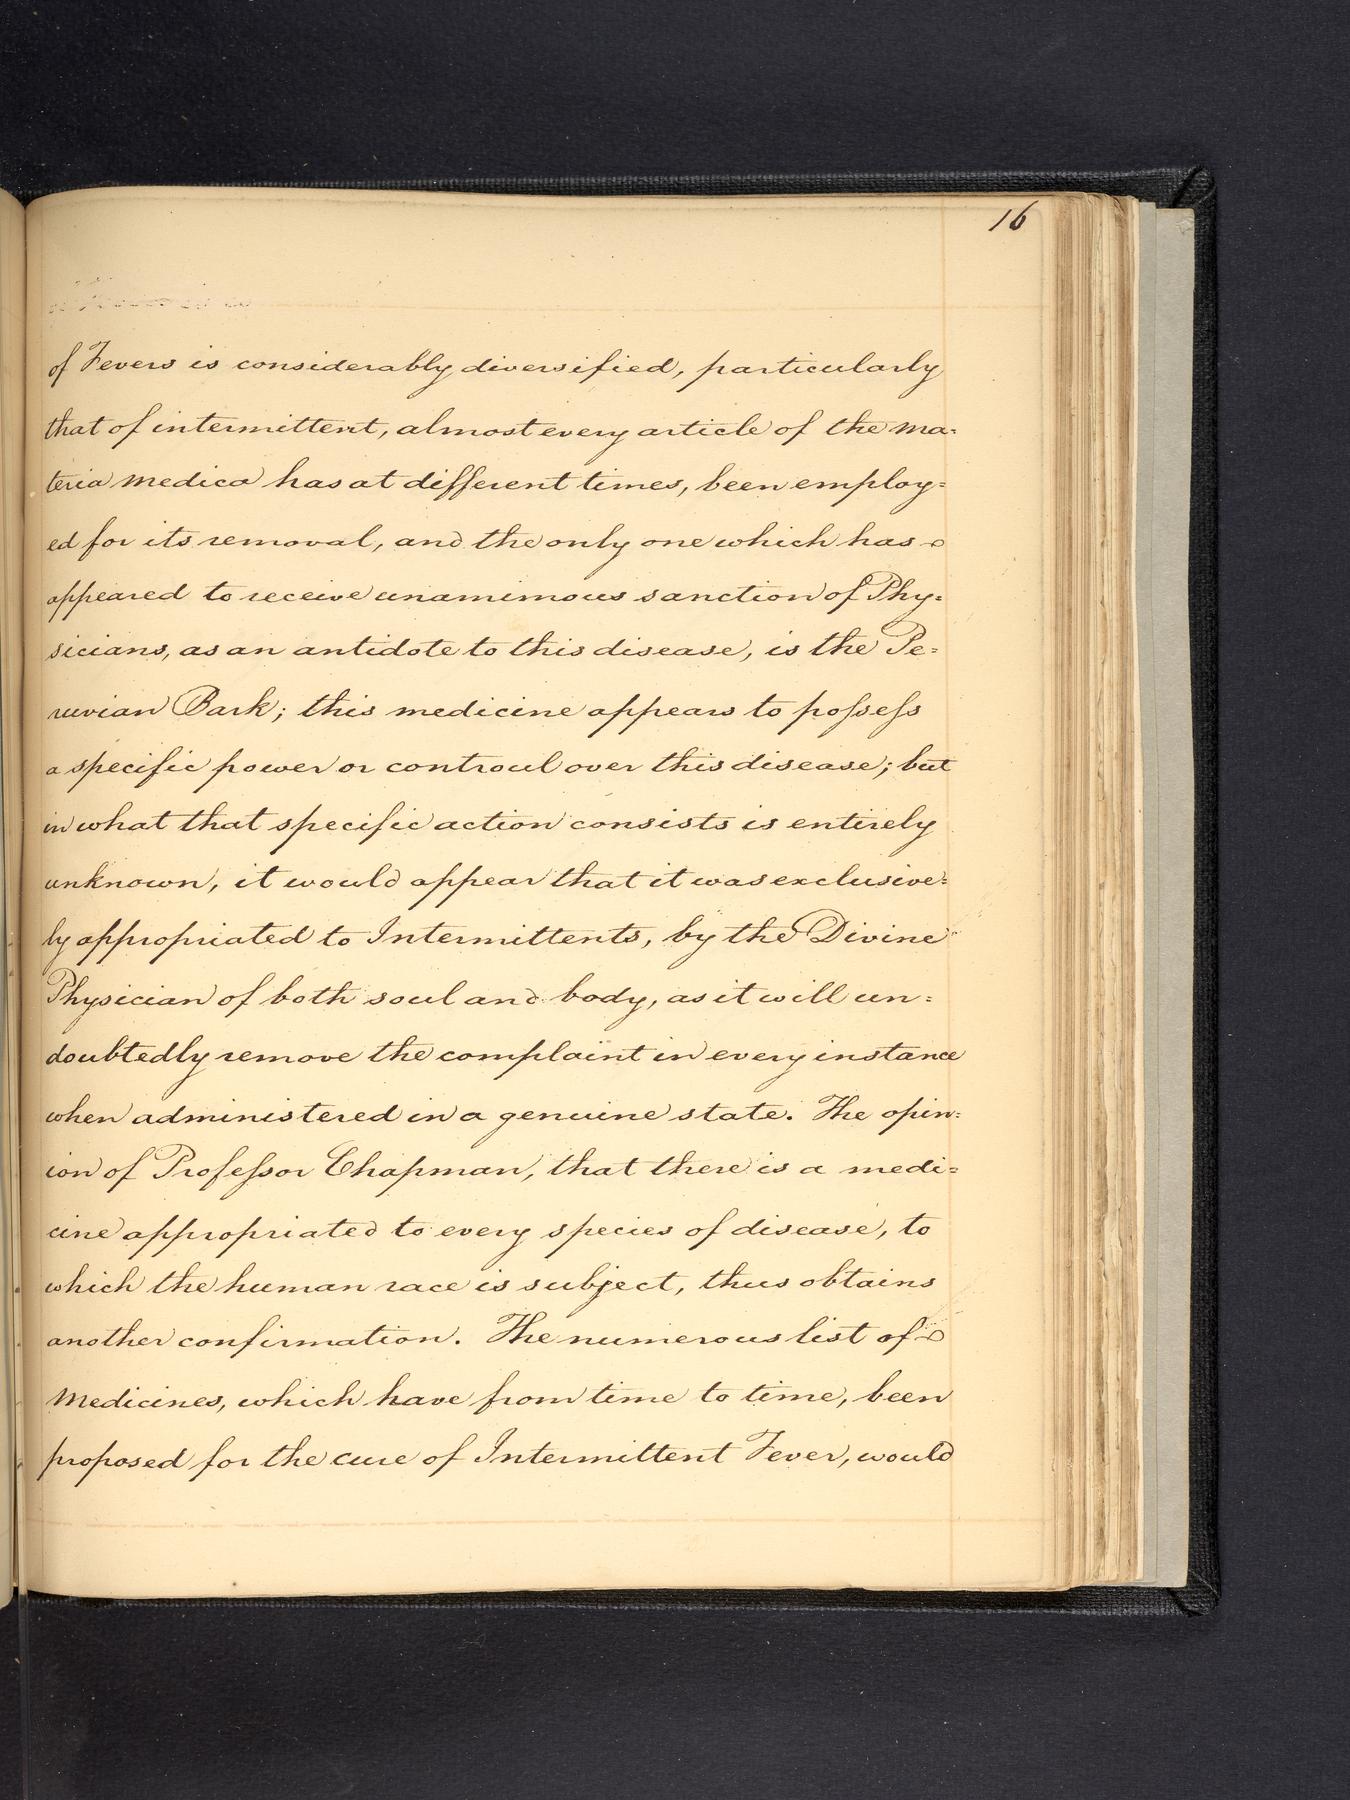 16
of Fevers is considerably diversified, particularly
that of intermittent, almost every article of the ma=
teria medica has at different times, been employ=
ed for its removal, and the only one which has
appeared to receive unamimous sanction of Phy=
sicians, as an antidote to this disease, is the Pe=
ruvian Bark; this medicine appears to possess
a specific power or controul over this disease; but
in what that specific action consists is entirely
unknown, it would appear that it was exclusive=
ly appropriated to Intermittents, by the Divine
Physician of both soul and body, as it will un=
doubtedly remove the complaint in every instance
when administered in a genuine state. The opin=
ion of Professor Chapman, that there is a medi=
cine appropriated to every species of disease, to
which the human race is subject, thus obtains
another confirmation. The numerous list of
medicines, which have from time to time, been
proposed for the cure of Intermittent Fever, would